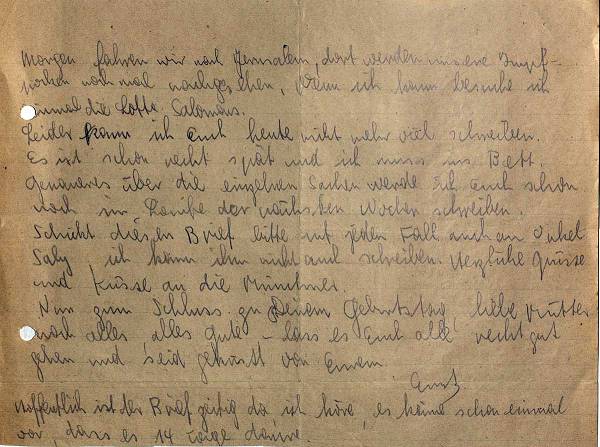 Morgen fahren wir nach Jerusalem, dort werden unsere Impf-
pocken noch mal nachgesehen, Wenn ich kann besuche ich
einmal die Lotte Salomons.
Leider kann ich Euch heute nicht mehr viel schreiben.
Es ist schon recht spät und ich muss ins Bett.
Genaueres über die einzelnen Sachen werde ich Euch schon
noch im Laufe der nächsten Wochen schreiben.
Schickt diesen Brief bitte auf jeden Fall auch an Onkel
Saly ich kann ihm nicht auch schreiben. Herzliche Grüsse
und Küsse an die Münchner.
Nun zum Schluss zu Deinem Geburtstag liebe Mutter
noch alles alles Gute – lass es Euch alle recht gut
gehen und seid geküsst von Eurem
Ernst
Hoffentlich ist der Brief zeitig da, ich höre, es käme schon einmal
vor, dass es 14 Tage dauere